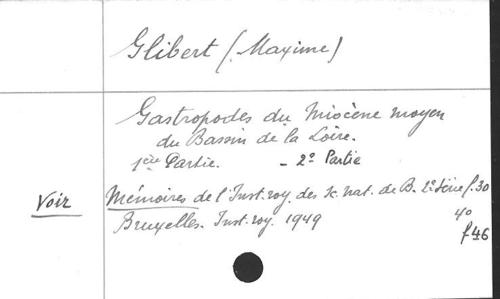 Glibert (Maxime)
Gastropodes du Miocène moyen
du Bassin de la Loire.
1ère Partie. - 2e Partie
Voir Mémoires de l'Inst. roy. des Sc. nat. de B. 2e Série f. 30
Bruxelles. Inst. roy. 1949 4o
f. 46